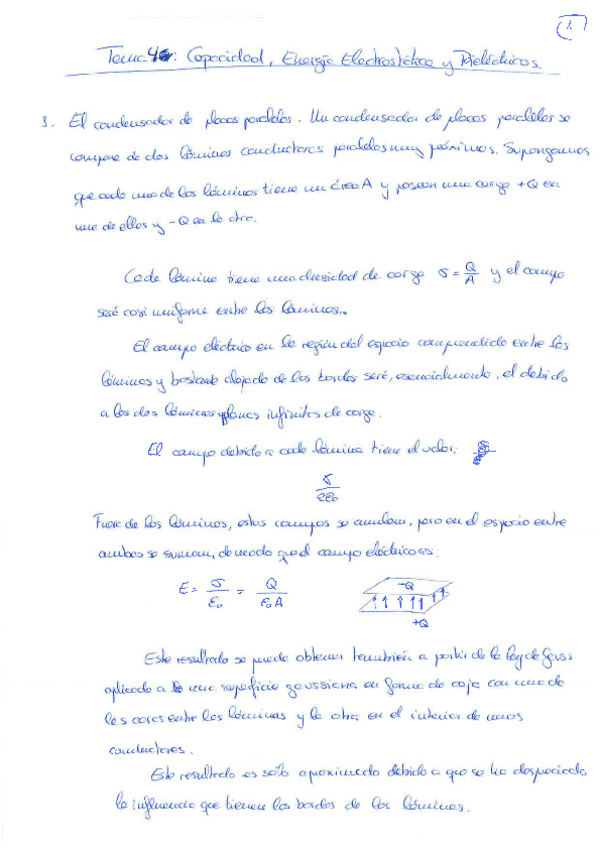 1.
Tema 4: Capacidad, Energía Electrostática y Dieléctricos.
1. El condensador de placas paralelas. Un condensador de placas paralelas se
compone de dos láminas conductoras paralelas muy próximas. Supongamos
que cada una de las láminas tiene un área A y posean una carga +Q en
una de ellas y -Q en la otra.
Cada lámina tiene una densidad de carga σ = Q/A y el campo
será casi uniforme entre las láminas.
El campo eléctrico en la región del espacio comprendido entre las
láminas y bastante alejado de los bordes será, esencialmente, el debido
a los dos láminas planas infinitas de carga.
El campo debido a cada lámina tiene el valor:
σ/2ε₀
Fuera de las láminas, estos campos se anulan, pero en el espacio entre
ambas se suman, de modo que el campo eléctrico es:
E = σ/ε₀ = Q/ε₀A
-Q
+Q
Este resultado se puede obtener también a partir de la ley de Gauss
aplicada a una superficie gaussiana en forma de caja con una de
las caras entre las láminas y la otra en el interior de unos
conductores.
Este resultado es sólo aproximado debido a que se ha despreciado
la influencia que tienen los bordes de las láminas.